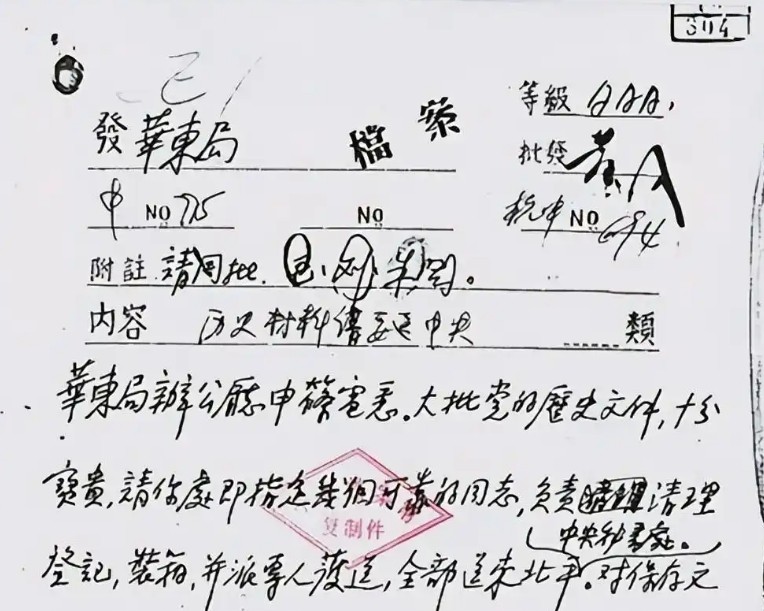 304
發 華東局
檔案
等級 AAA,
批發
申 NO 775
NO
NO 694
附註 請周批.
內容 历史材料 中央
類
華東局辦公廳申篠電悉。大批党的歷史文件,十分
寶貴,請你處即指定幾個可靠的同志,負責清理
中央秘書處。
登記,裝箱,并派專人護送,全部送来北平。对保存文
复制件